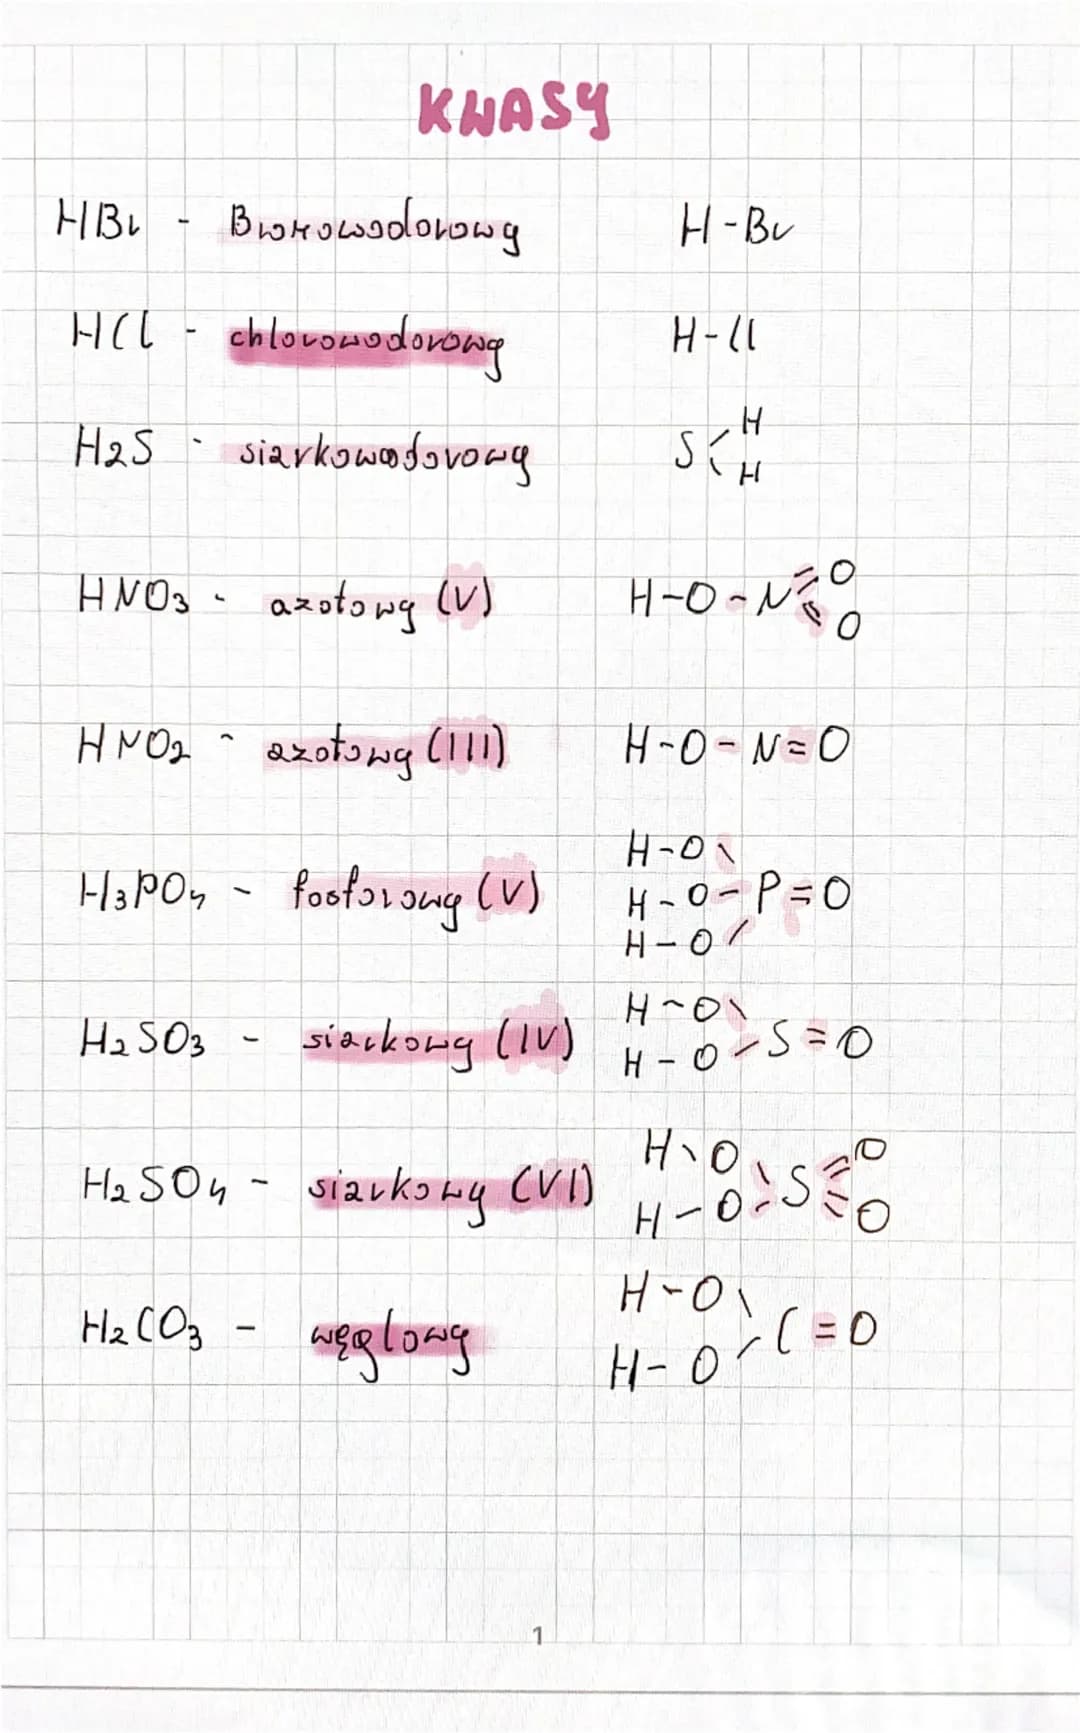 KWASY
HBr - Bromowodorowy H-Br
HCl - chlorowodorowy H-Cl
H2S - siarkowodorowy S H H
HNO3 - azotowy (V) H-O-N=O =O
HNO2 - azotowy (III) H-O-N=O
H3PO4 - fosforowy (V) H-O\ H-O-P=O H-O/
H2SO3 - siarkowy (IV) H-O\ H-O-S=O
H2SO4 - siarkowy (VI) H-O\ H-O-S=O =O
H2CO3 - węglowy H-O\ H-O/C=O
1